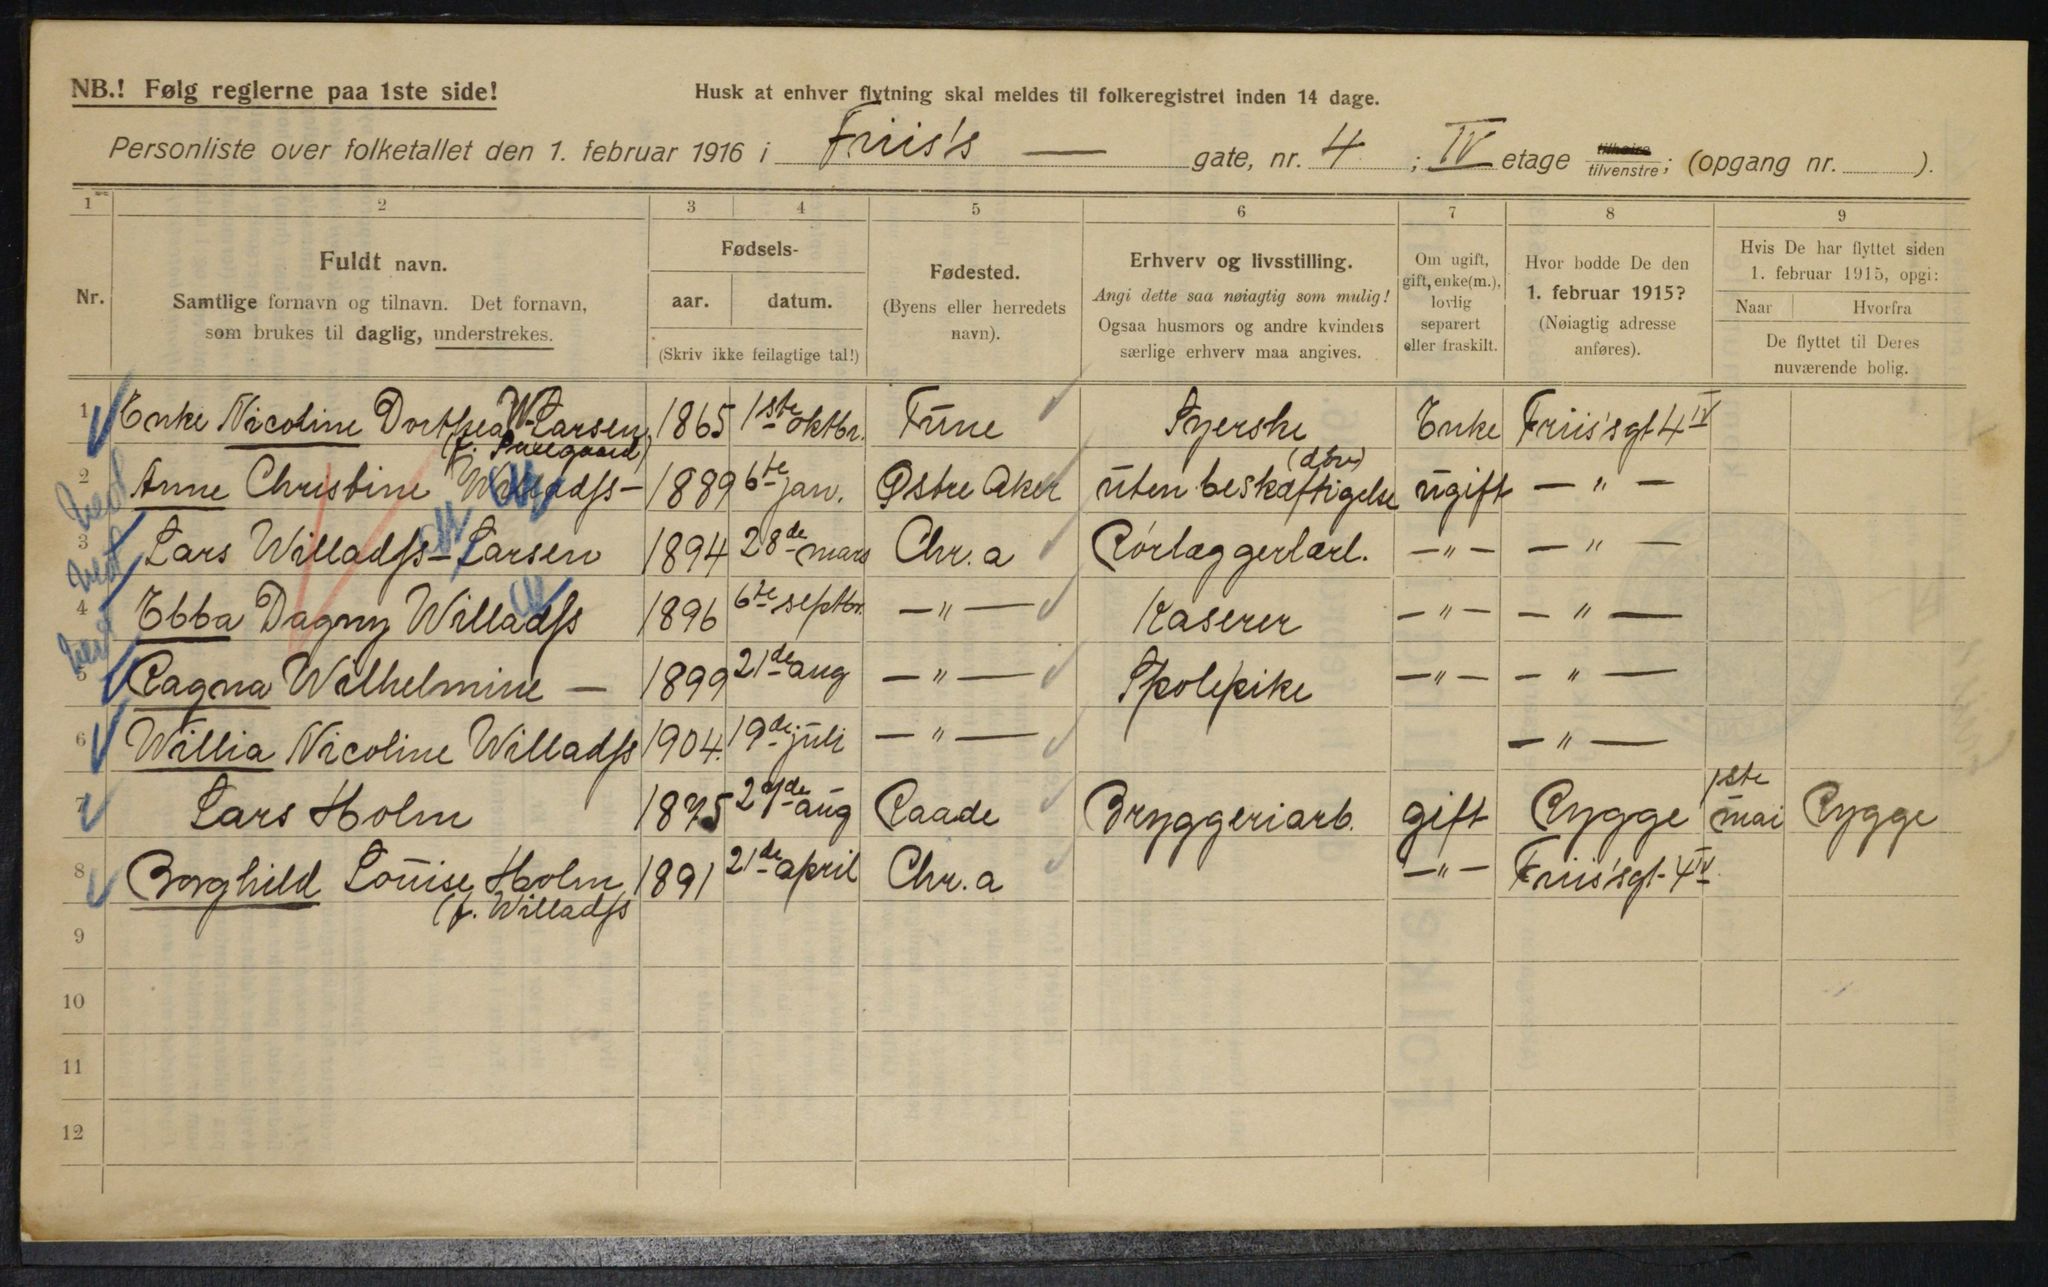 NB.! Følg reglerne paa 1ste side!
Husk at enhver flytning skal meldes til folkeregistret inden 14 dage.
Personliste over folketallet den 1. februar 1916 i Friis's — gate, nr. 4 ; IV etage tilhøire tilvenstre; (opgang nr. ).
1 2 3 4 5 6 7 8 9
Nr.
Fuldt navn.
Samtlige fornavn og tilnavn. Det fornavn,
som brukes til daglig, understrekes.
Fødsels-
aar. datum.
(Skriv ikke feilagtige tal!)
Fødested.
(Byens eller herredets
navn).
Erhverv og livsstilling.
Angi dette saa nøiagtig som mulig!
Ogsaa husmors og andre kvinders
særlige erhverv maa angives.
Om ugift,
gift, enke(m.),
lovlig
separert
eller fraskilt.
Hvor bodde De den
1. februar 1915?
(Nøiagtig adresse
anføres).
Hvis De har flyttet siden
1. februar 1915, opgi:
Naar Hvorfra
De flyttet til Deres
nuværende bolig.
1 Enke Nicoline Dorthea W. Larsen 1865 1ste oktbr. Tune Syerske Enke Friis'sgt 4 IV
2 Anne Christine Willadss— 1889 6te jan. Østre Aker uten beskæftigelse (døv) ugift — " —
3 Lars Willadss—Larsen 1894 28de mars Chr.a Rørlæggerlærl. — " — — " —
4 Ebba Dagny Willadss 1896 6te septbr. — " — Kaserer — " — — " —
5 Ragna Wilhelmine — 1899 21de aug — " — Spolepike — " — — " —
6 Willia Nicoline Willadss 1904. 19de juli — " — — " —
7 Lars Holm 1875 21de aug Raade Bryggeriarb. gift Rygge 1ste mai Rygge
8 Borghild Louise Holm 1891 21de april Chr.a — " — Friis'sgt. 4 IV
(f. Willadss
9
10
11
12